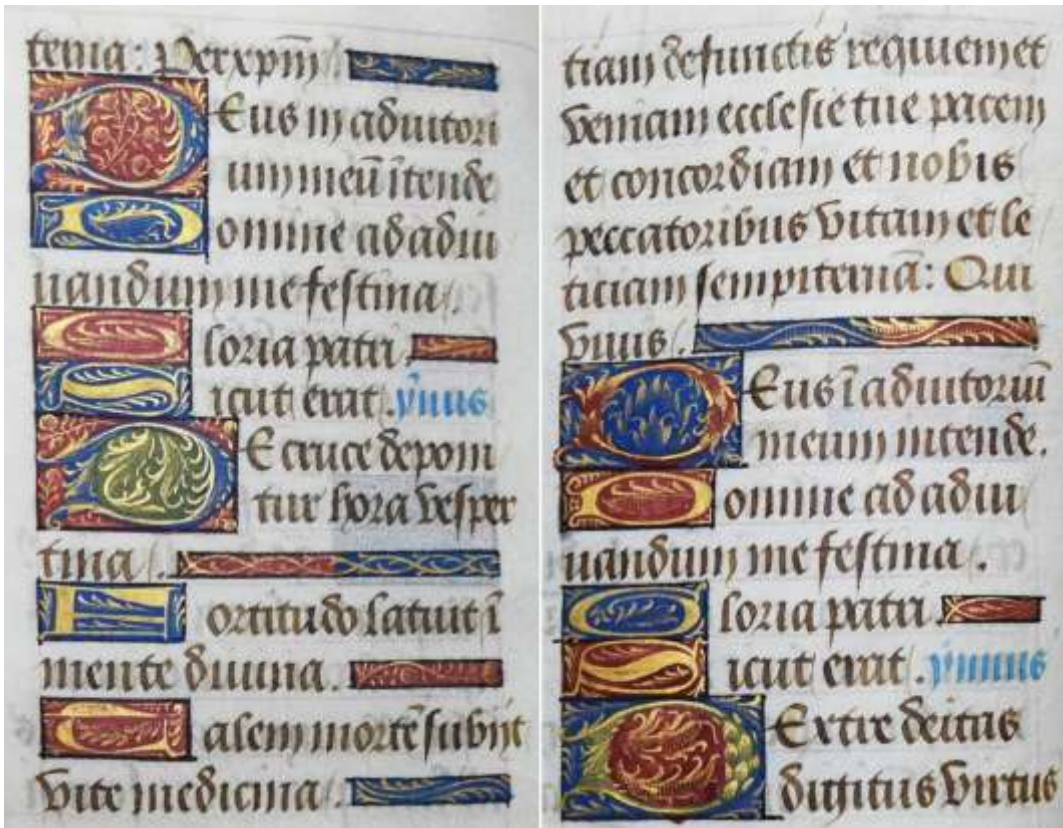 terna: Per xpm̄.
DEus in adiutori
um meū ītende
Domine ad adiu
uandum me festina.
Gloria patri.
Sicut erat. ỹnus
DE cruce deponi
tur hora vesper
tina.
Fortitudo latuit ī
mente diuina.
Talem mortē subijt
vite medicina.
tiam defunctis requiem et
veniam ecclesie tue pacem
et concordiam et nobis
peccatoribus vitam et le
ticiam sempiternā: Qui
viuis.
DEus ī adiutoriū
meum intende.
Domine ad adiu
uandum me festina.
Gloria patri.
Sicut erat. ymnus
DExtre deitus
digitus virtus